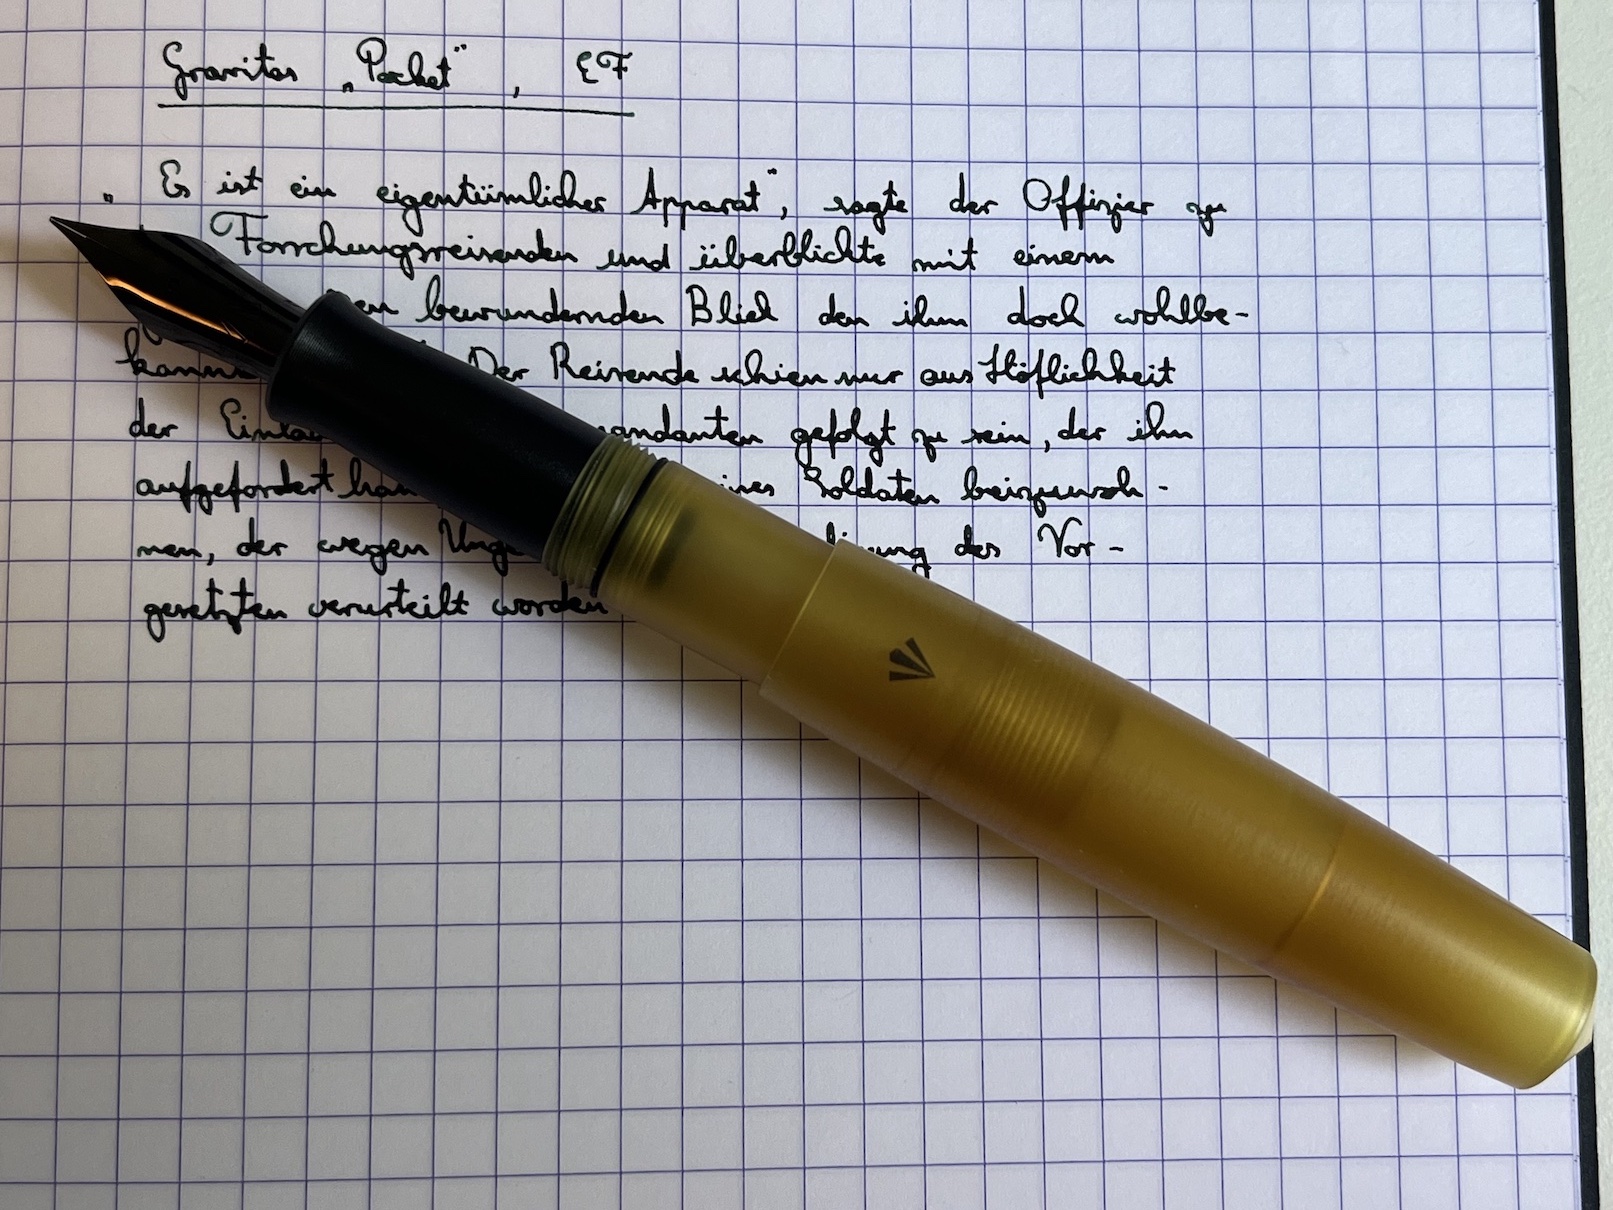 Gravitas „Pocket“, EF
„Es ist ein eigentümlicher Apparat“, sagte der Offizier zu
Forschungsreisenden und überblickte mit einem
en bewundernden Blick den ihm doch wohlbe-
kannt Der Reisende schien nur aus Höflichkeit
der Einla andanten gefolgt zu sein, der ihn
aufgefordert hat ines Soldaten beizuwoh-
nen, der wegen Unge digung des Vor-
gesetzten verurteilt worden